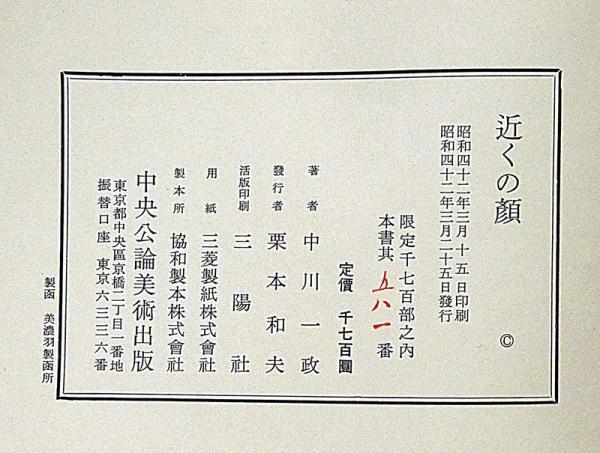 近くの顔
©
昭和四十二年三月十五日印刷
昭和四十二年三月二十五日發行
限定千七百部之內
本書其 五八一 番
定價 千七百圓
著者 中川一政
發行者 栗本和夫
活版印刷 三陽社
用紙 三菱製紙株式會社
製本所 協和製本株式會社
中央公論美術出版
東京都中央區京橋二丁目一番地
振替口座 東京六三三六番
製函 美濃羽製函所